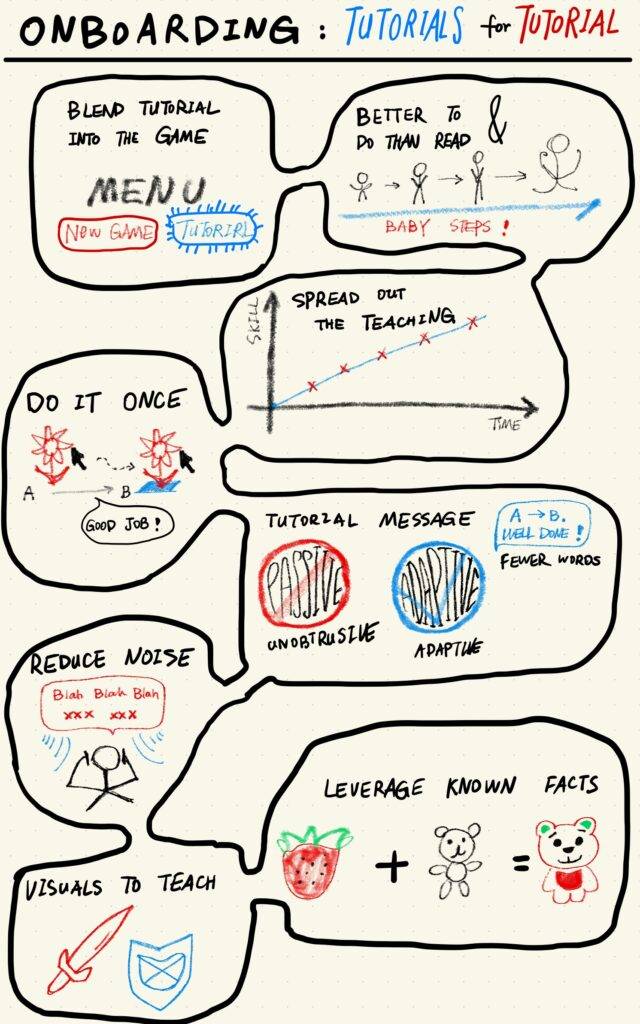 ONBOARDING: TUTORIALS for TUTORIAL
BLEND TUTORIAL
INTO THE GAME
MENU
NEW GAME
TUTORIRL
BETTER TO &
DO THAN READ
BABY STEPS!
SPREAD OUT
THE TEACHING
SKILL
TIME
DO IT ONCE
A
B
GOOD JOB!
TUTORIAL MESSAGE
PASSIVE
UNOBTRUSIVE
ADAPTIVE
ADAPTIVE
A → B.
WELL DONE!
FEWER WORDS
REDUCE NOISE
Blah Blah Blah
xxx xxx
LEVERAGE KNOWN FACTS
+ =
VISUALS TO TEACH